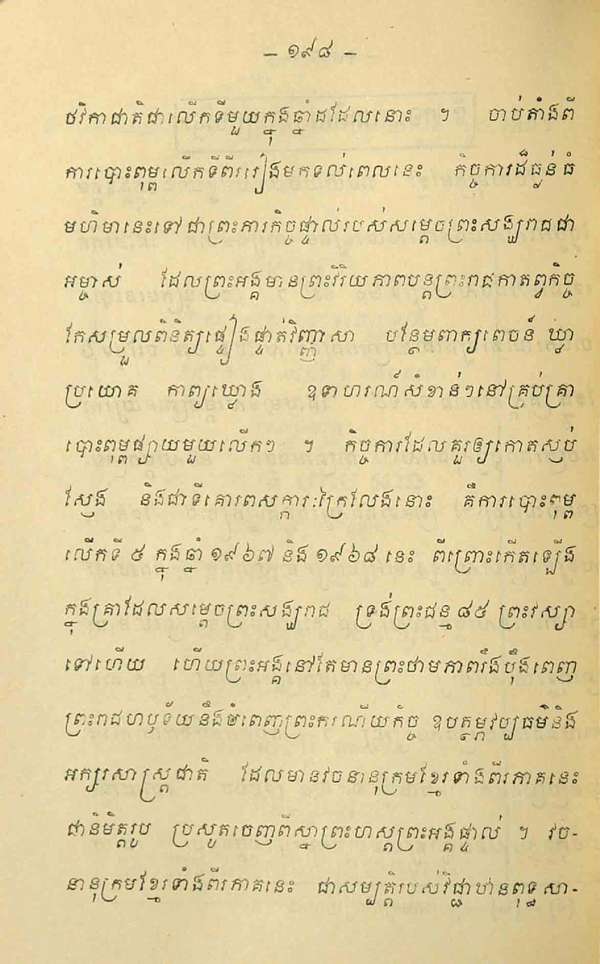 – ១៩៨ –
ថវិកាជាតិជាលើកទីមួយក្នុងឆ្នាំដដែលនោះ ។ ចាប់តាំងពី
ការបោះពុម្ពលើកទីពីររៀងមកទល់ពេលនេះ កិច្ចការដ៏ធ្ងន់ធំ
មហិមានេះទៅជាព្រះភារកិច្ចផ្ទាល់របស់សម្ដេចព្រះសង្ឃរាជជា
អម្ចាស់ ដែលព្រះអង្គមានព្រះវិរិយភាពបន្តព្រះរាជកាតព្វកិច្ច
កែសម្រួលពិនិត្យផ្ទៀងផ្ទាត់វិញ្ញាសា បន្ថែមពាក្យពេចន៍ ឃ្លា
ប្រយោគ កាព្យឃ្លោង ឧទាហរណ៍សំខាន់ៗនៅគ្រប់គ្រា
បោះពុម្ពផ្សាយមួយលើកៗ ។ កិច្ចការដែលគួរឲ្យកោតស្ញប់
ស្ញែង និងជាទីគោរពសក្ការៈក្រៃលែងនោះ គឺការបោះពុម្ព
លើកទី ៥ ក្នុងឆ្នាំ ១៩៦៧ និង ១៩៦៨ នេះ ពីព្រោះកើតឡើង
ក្នុងគ្រាដែលសម្ដេចព្រះសង្ឃរាជ ទ្រង់ព្រះជន្ម ៨៥ ព្រះវស្សា
ទៅហើយ ហើយព្រះអង្គនៅតែមានព្រះថាមភាពរឹងប៉ឹងពេញ
ព្រះរាជហឫទ័យនឹងបំពេញព្រះករណីយកិច្ច ឧបត្ថម្ភវប្បធម៌និង
អក្សរសាស្ត្រជាតិ ដែលមានវចនានុក្រមខ្មែរទាំងពីរភាគនេះ
ជានិមិត្តរូប ប្រសូតចេញពីស្នាព្រះហស្តព្រះអង្គផ្ទាល់ ។ វច-
នានុក្រមខ្មែរទាំងពីរភាគនេះ ជាសម្បត្តិរបស់វិជ្ជាឋានពុទ្ធសា-